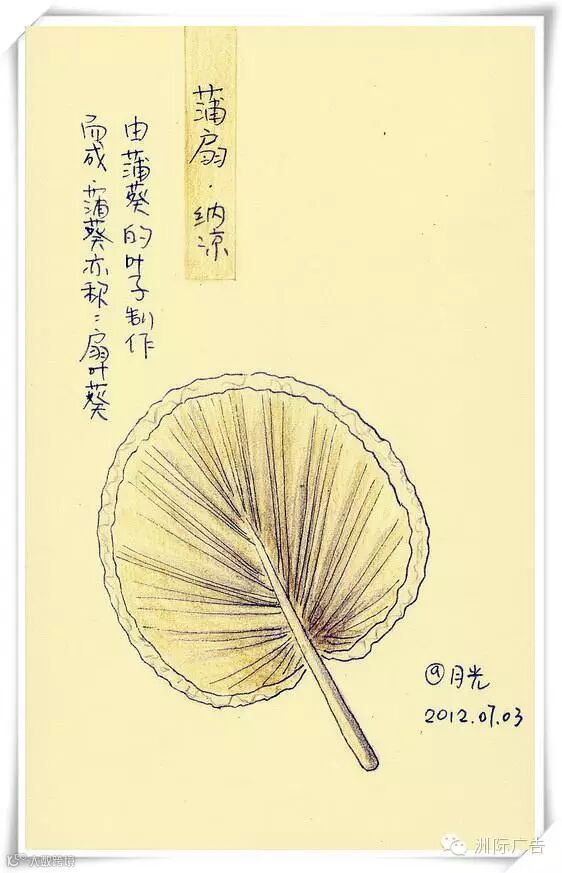 蒲扇·纳凉
由蒲葵的叶子制作
而成·蒲葵亦称:扇叶葵
@月光
2012.07.03
洲际广告
大数跨境